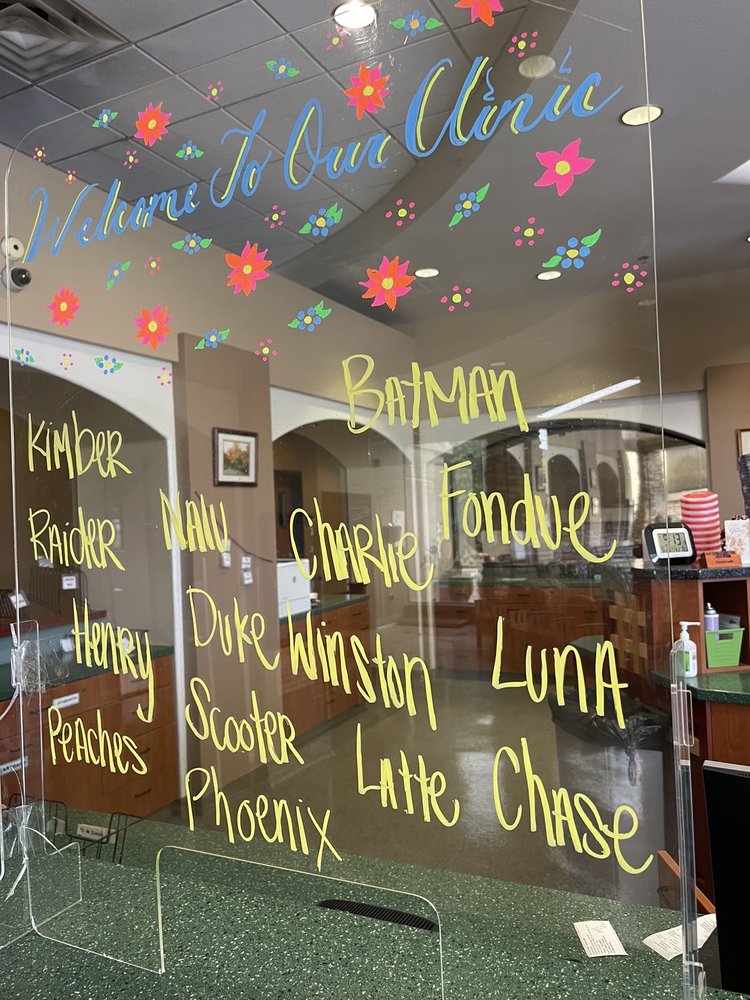 Welcome To Our Clinic
Batman
Kimber
Raider
Nalu
Charlie
Fondue
Henry
Duke
Winston
Luna
Peaches
Scooter
Latte
Chase
Phoenix